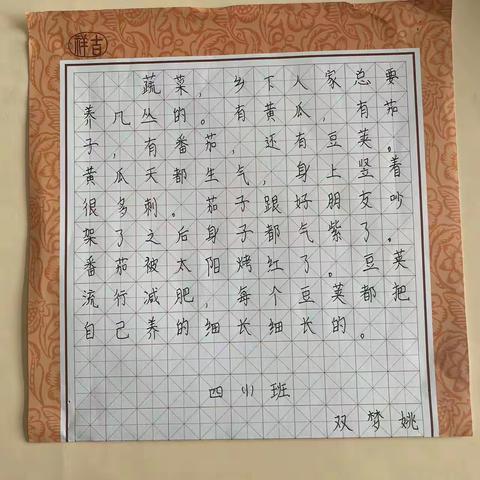 祥吉
蔬菜，乡下人家总要
养几丛的。有黄瓜，有茄
子，有番茄，还有豆荚。
黄瓜天都生气，身上竖着
很多刺。茄子跟好朋友吵
架了之后身子都气紫了。
番茄被太阳烤红了。豆荚
流行减肥，每个豆荚都把
自己养的细长细长的。
四小班
双梦姚